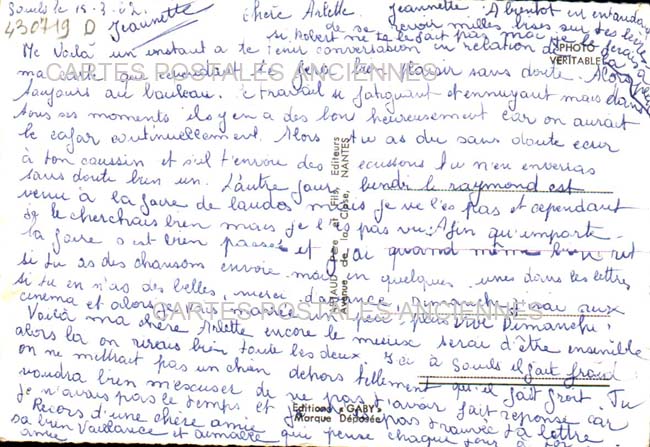 Souls le 15.3.62.
430719 D
Jeannette
Chère Arlette
Jeannette A bientôt en
de se revoir milles bises sur
si Robert ne te le fait pas moi je le ferais
PHOTO VÉRITABLE
Me Voilà un instant a te tenir conversation en relation de la
ma carte qui cependant te fera bien plaisir sans doute. Alors
toujours au bouleau. Le travail si fatiguant et ennuyant mais dans
tous ses moments ils y en a des bon heureusement car on aurait
le cafar continuellement. Alors tu as du sans doute ecrir
à ton coussin et s'il t'envoie des ecussons tu m'en enverras
sans doute bien un. L'autre jour lundi le raymond est
venu à la foire de mais je ne l'es pas et cependant
je le cherchais bien mais je l'ai pas vu. Afin qu'importe
la foire s'est bien passée et j'ai quand même bien ri
si tu as des chansons envoie m'en quelques unes dans les lettres
si tu en n'as des belles, merci d'avance. Dimanche j'irai aux
cinéma et alors peu peu vive Dimanche!
Voilà ma chère Arlette encore le mieux serai d'être ensemble
alors la on rirais bien toute les deux. Ici à Souls il fait froid
on ne mettrait pas un chien dehors tellement qu'il fait froit. Tu
voudra bien m'excuser de ne pas t'avoir fait réponse car
je n'avais pas le temps et je pas trouvée ta lettre
Recois d'une chère amie
sa bien Vaillance et aimable qui pense chaque jour à
amie
CARTES POSTALES ANCIENNES
CARTES POSTALES ANCIENNES
ARTAUD Père et Fils, Editeurs
Avenue de la Close, NANTES
Editions «GABY»
Marque Déposée